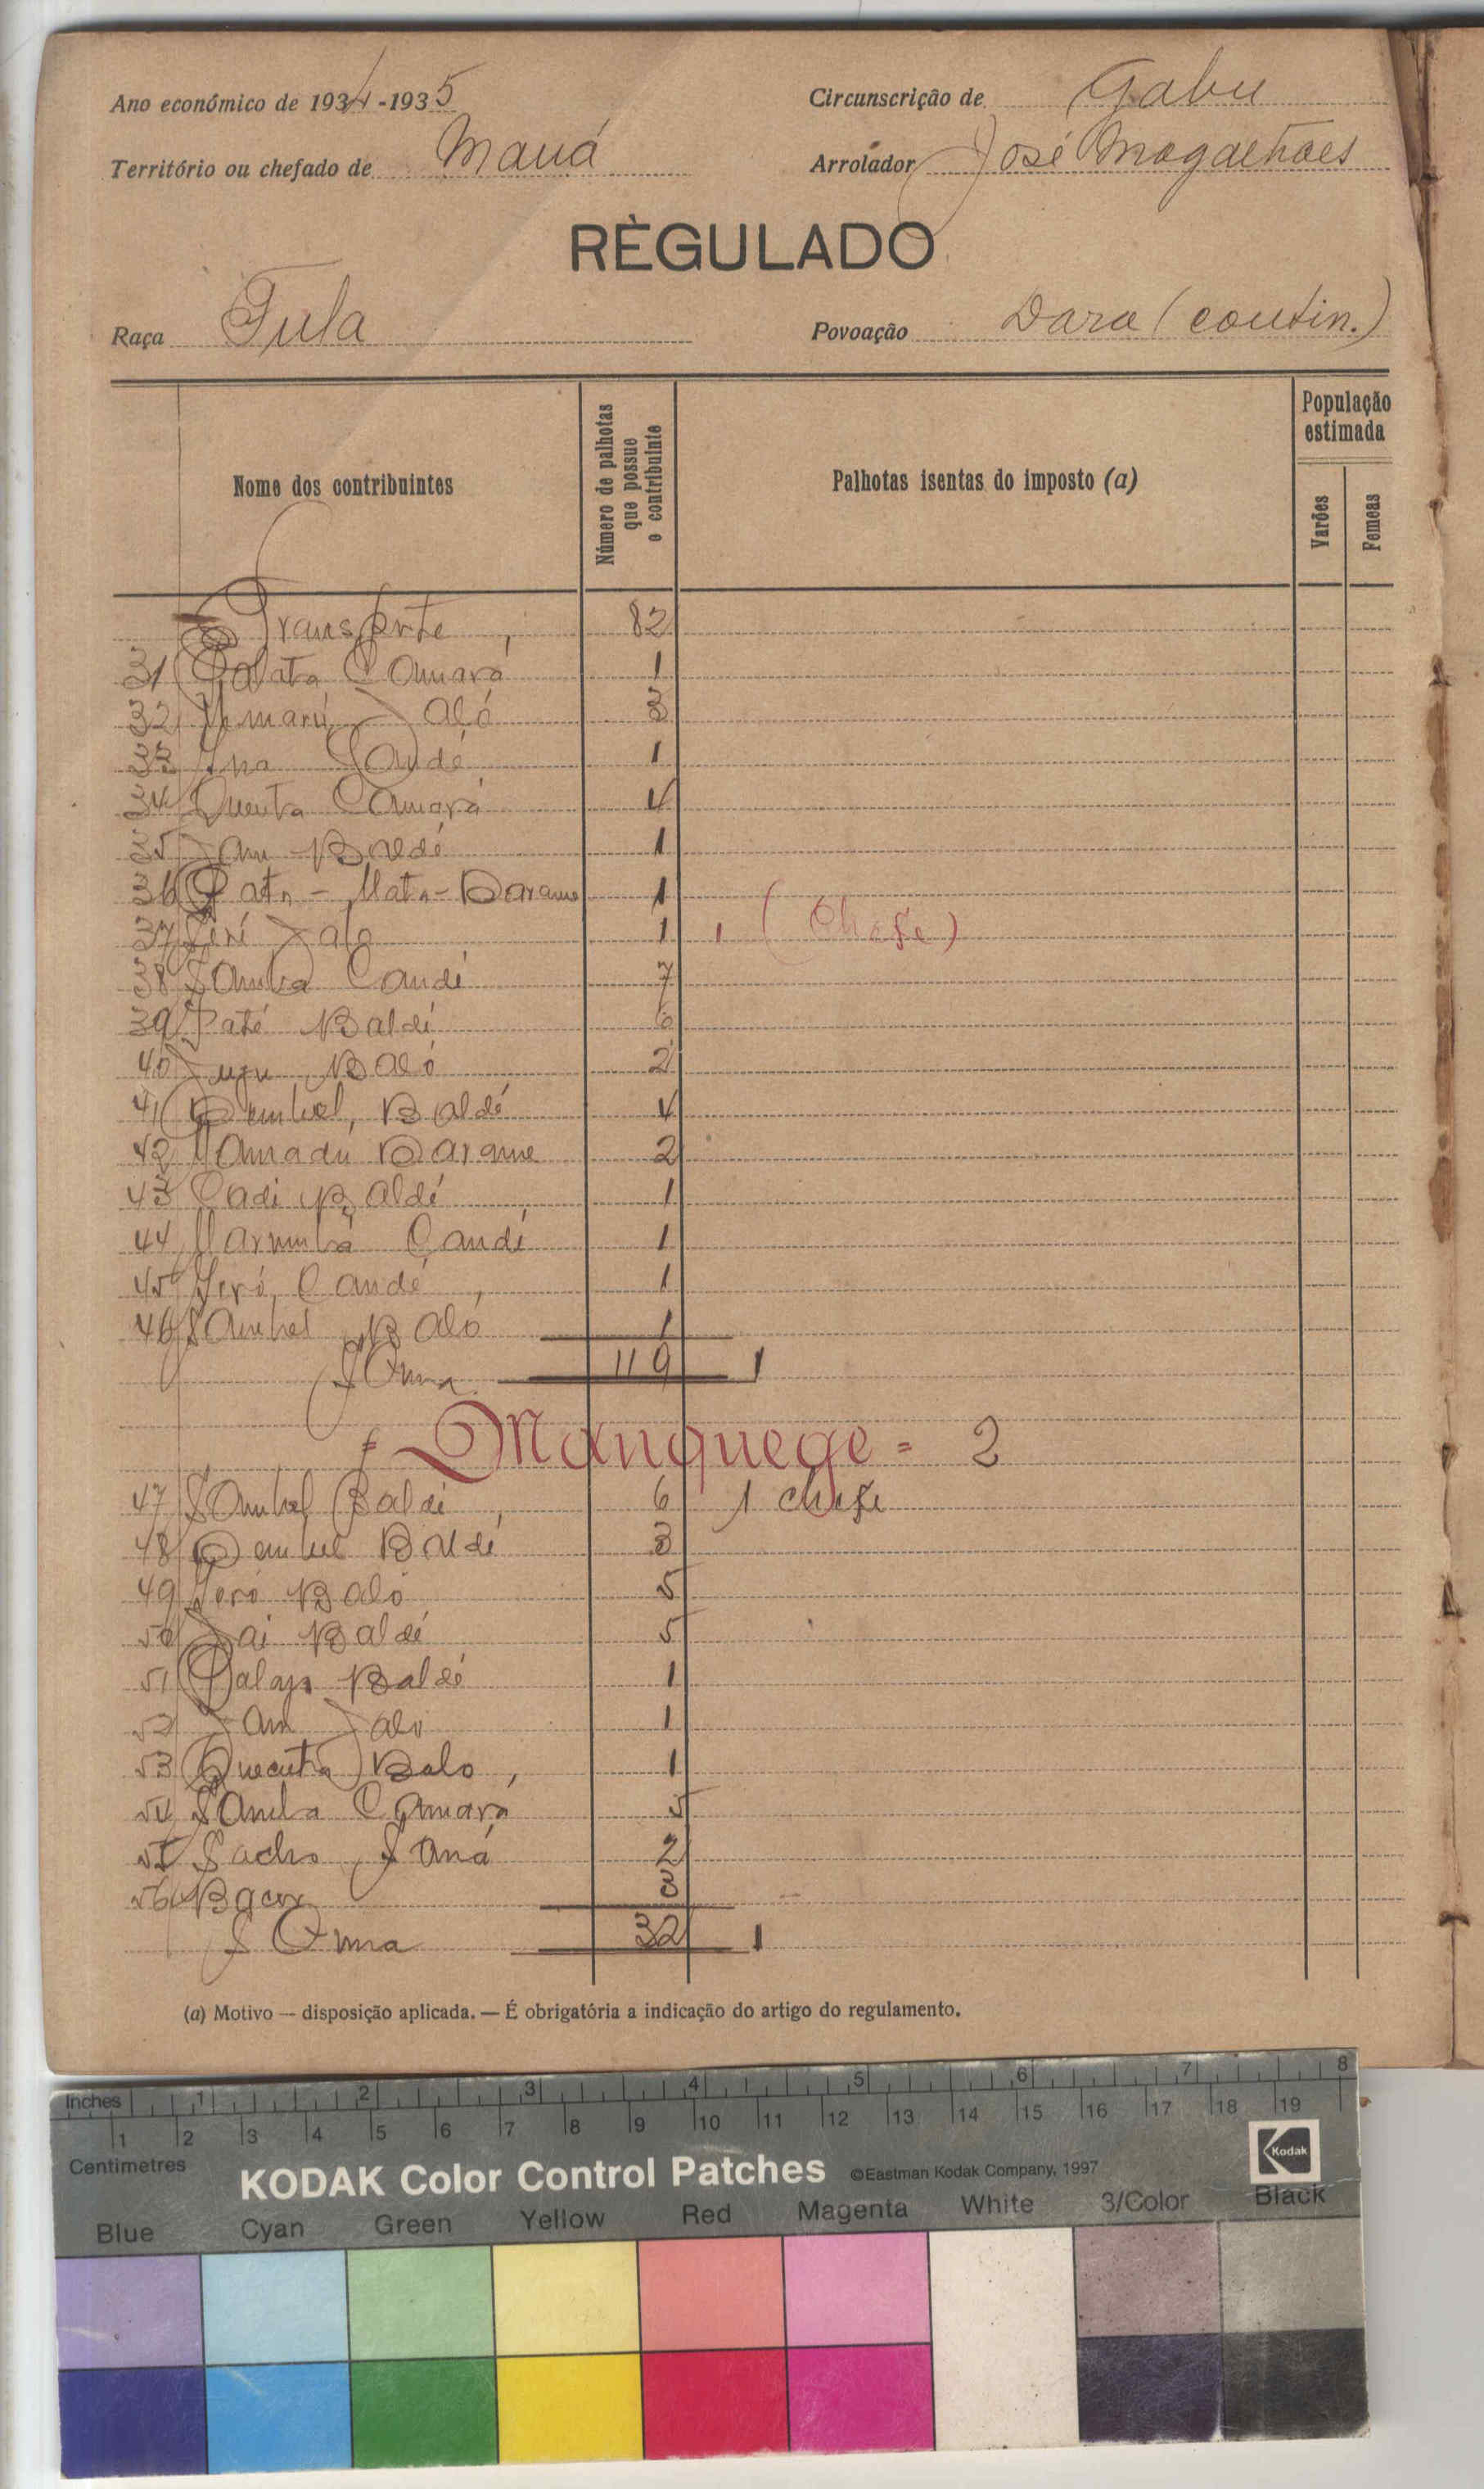 Ano económico de 1934-1935
Circunscrição de Gabu
Território ou chefado de Maná
Arrolador José Magalhães
RÈGULADO
Raça Fula
Povoação Dara (contin.)
Nome dos contribuintes
Número de palhotas que possue o contribuinte
Palhotas isentas do imposto (a)
População estimada
Varões
Femeas
Transporte 82
31 Camará 1
32 Jaló 3
33 Candé 1
34 Quenta Camará 4
35 Baldé 1
36 1
37 Jaló 1 1 (Chefe)
38 Samba Candé 7
39 Paté Baldé 6
40 Baló 2
41 Dembel Baldé 4
42 Mamadú Darame 2
43 Cadi Baldé 1
44 Candé 1
45 Ieró Candé 1
46 Sambel Baló 1
Soma 119 1
= Manquege = 2
47 Sambel Baldé 6 1 chefe
48 Dembel Baldé 3
49 Ieró Baló 5
50 Jai Baldé 5
51 Baldé 1
52 Jam Jaló 1
53 Quecuta Balo 1
54 Samba Camará 5
55 Sacho Saná 2
56 3
Soma 32 1
(a) Motivo — disposição aplicada. — É obrigatória a indicação do artigo do regulamento.
Inches 1 2 3 4 5 6 7 8
1 2 3 4 5 6 7 8 9 10 11 12 13 14 15 16 17 18 19
Centimetres
KODAK Color Control Patches ©Eastman Kodak Company, 1997 Kodak
Blue Cyan Green Yellow Red Magenta White 3/Color Black